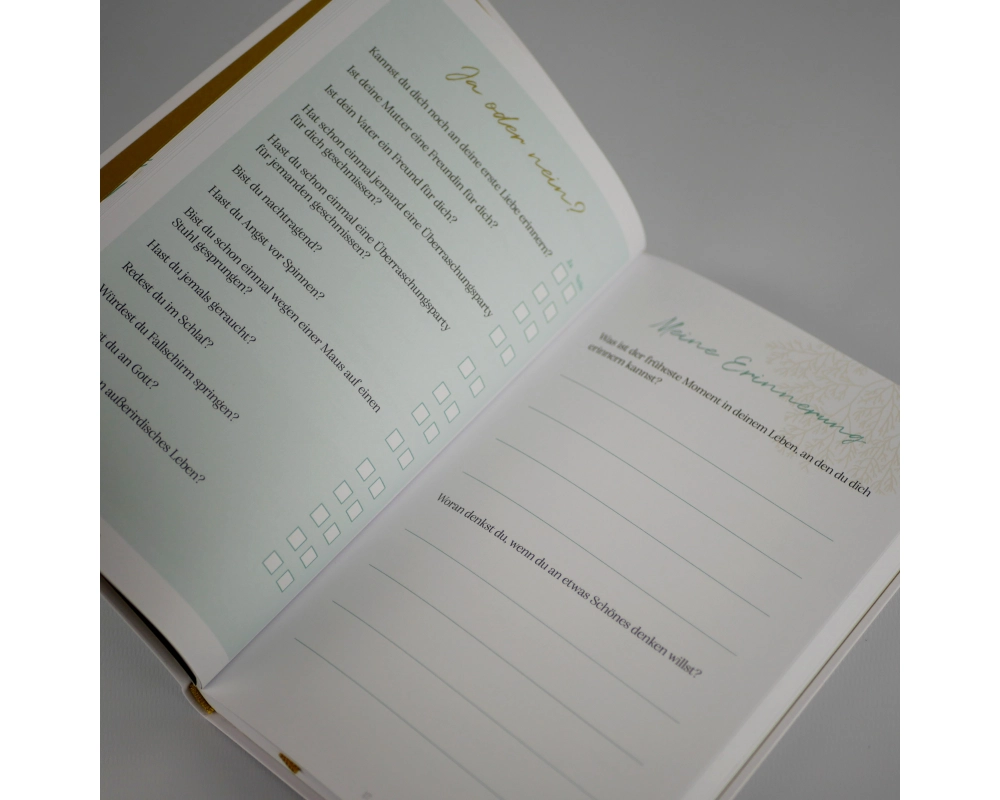 Ja oder nein?
Kannst du dich noch an deine erste Liebe erinnern?
Ist deine Mutter eine Freundin für dich?
Ist dein Vater ein Freund für dich?
Hat schon einmal jemand eine Überraschungsparty
für dich geschmissen?
Hast du schon einmal eine Überraschungsparty
für jemanden geschmissen?
Bist du nachtragend?
Hast du Angst vor Spinnen?
Bist du schon einmal wegen einer Maus auf einen
Stuhl gesprungen?
Hast du jemals geraucht?
Redest du im Schlaf?
Würdest du Fallschirm springen?
du an Gott?
außerirdisches Leben?
Meine Erinnerung
Was ist der früheste Moment in deinem Leben, an den du dich
erinnern kannst?
Woran denkst du, wenn du an etwas Schönes denken willst?